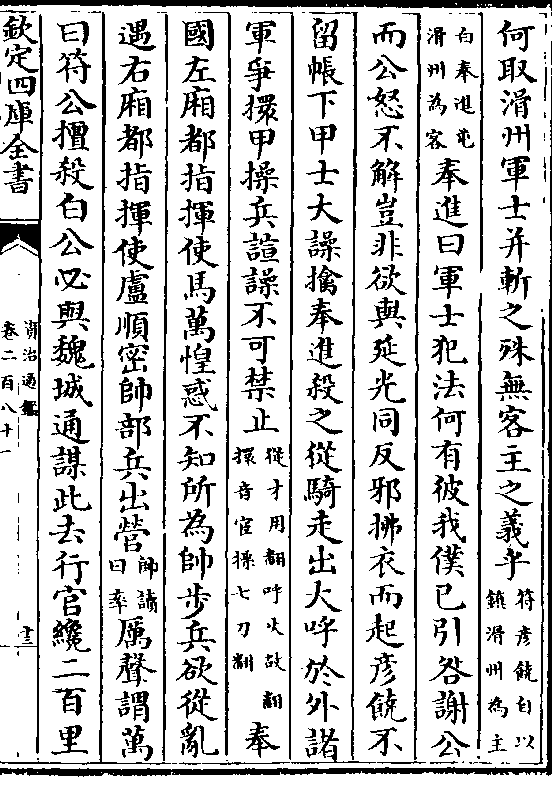 何取滑州軍士并斬之殊無客主之義乎符彦饒自以鎮滑州為主
白奉進屯滑州為客奉進曰軍士犯法何有彼我僕已引咎謝公
而公怒不解豈非欲與延光同反邪拂衣而起彦饒不
留帳下甲士大譟擒奉進殺之從騎走出大呼於外諸
軍爭擐甲操兵諠譟不可禁止從才用翻呼火故翻擐音宦操七刀翻奉
國左廂都指揮使馬萬惶惑不知所為帥步兵欲從亂
遇右廂都指揮使盧順密帥部兵出營帥讀曰率厲聲謂萬
曰符公擅殺白公必與魏城通謀此去行宫纔二百里
欽定四庫全書
資治通鑑
卷二百八十一